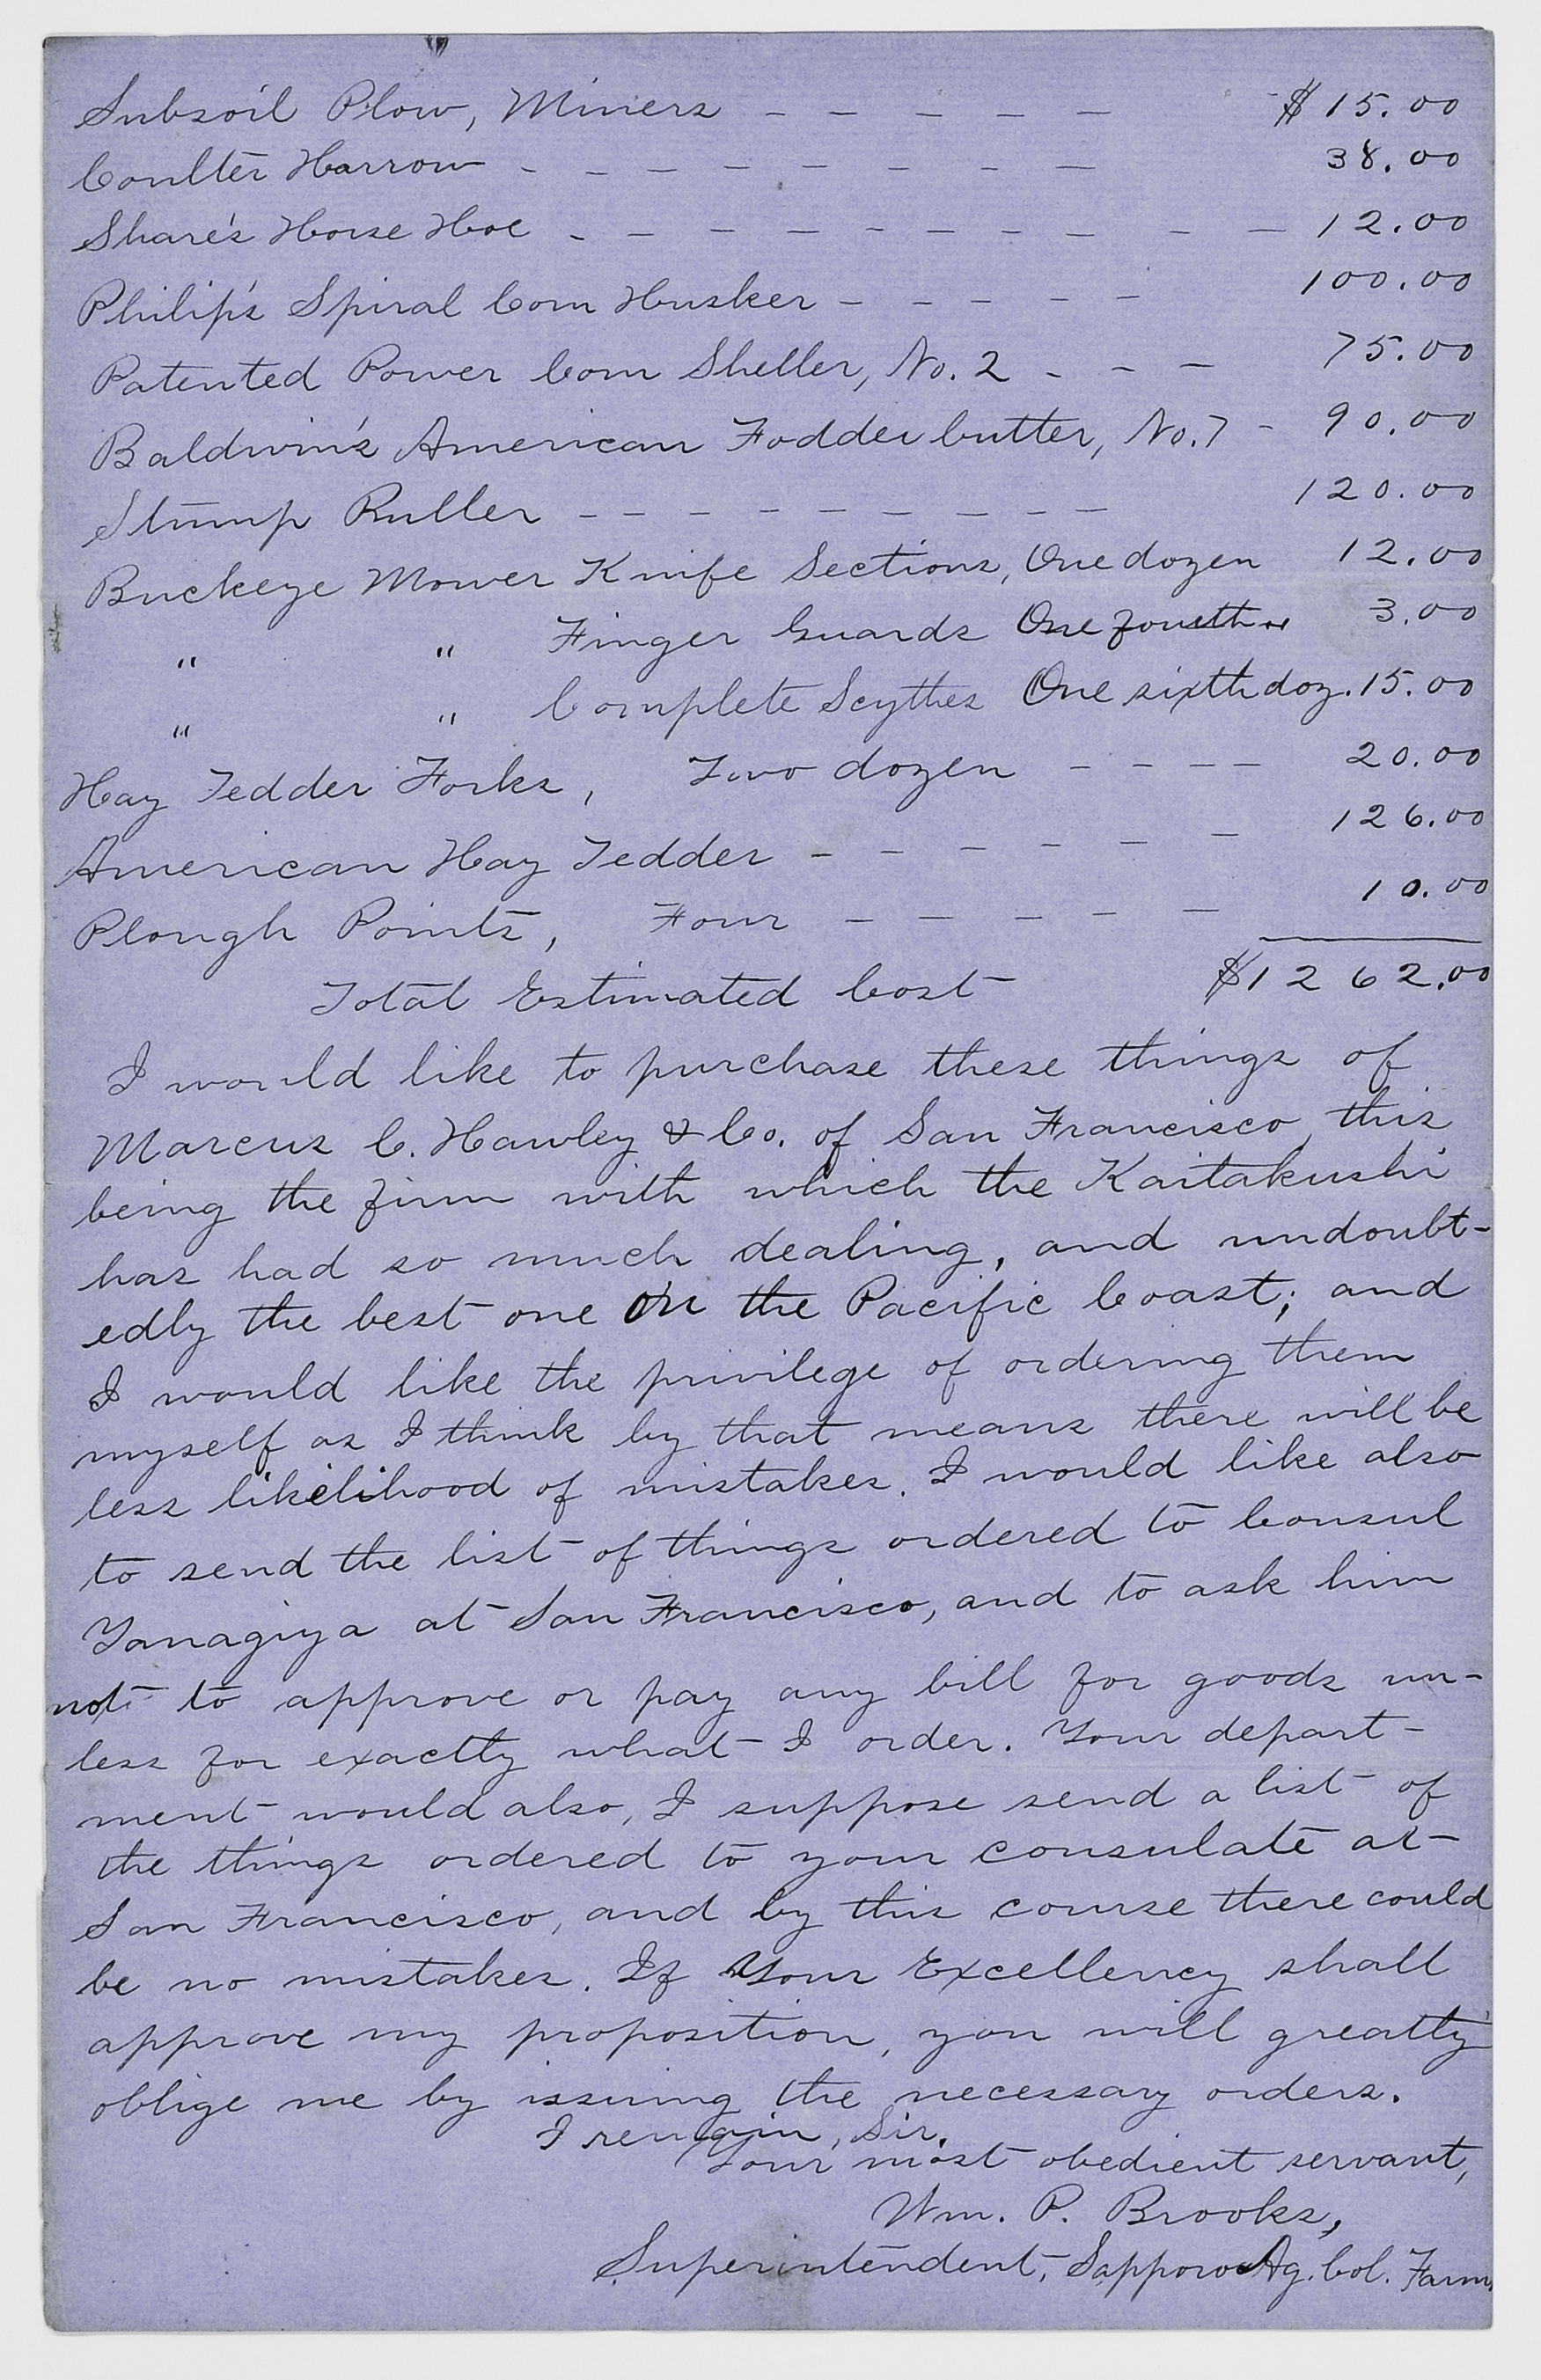 Subsoil Plow, Miners - - - - - $15.00
Coulter Harrow - - - - - - - - 38.00
Share's Horse Hoe - - - - - - - - - - 12.00
Philip's Spiral Corn Husker - - - - - 100.00
Patented Power Corn Sheller, No. 2 - - - 75.00
Baldwin's American Fodder Cutter, No. 7 - 90.00
Stump Puller - - - - - - - - - 120.00
Buckeye Mower Knife Sections, One dozen 12.00
" " Finger Guards One fourth " 3.00
" " Complete Scythes One sixth doz. 15.00
Hay Tedder Forks, Two dozen - - - - 20.00
American Hay Tedder - - - - - - 126.00
Plough Points, Four - - - - - 10.00
Total Estimated Cost $1262.00
I would like to purchase these things of
Marcus C. Hawley & Co. of San Francisco, this
being the firm with which the Kaitakushi
has had so much dealing, and undoubt-
edly the best one on the Pacific Coast; and
I would like the privilege of ordering them
myself as I think by that means there will be
less likelihood of mistakes. I would like also
to send the list of things ordered to Consul
Yanagiya at San Francisco, and to ask him
not to approve or pay any bill for goods un-
less for exactly what I order. Your depart-
ment would also, I suppose send a list of
the things ordered to your consulate at
San Francisco, and by this course there could
be no mistakes. If Your Excellency shall
approve my proposition, you will greatly
oblige me by issuing the necessary orders.
I remain, Sir,
Your most obedient servant,
Wm. P. Brooks,
Superintendent, Sapporo Ag. Col. Farm.